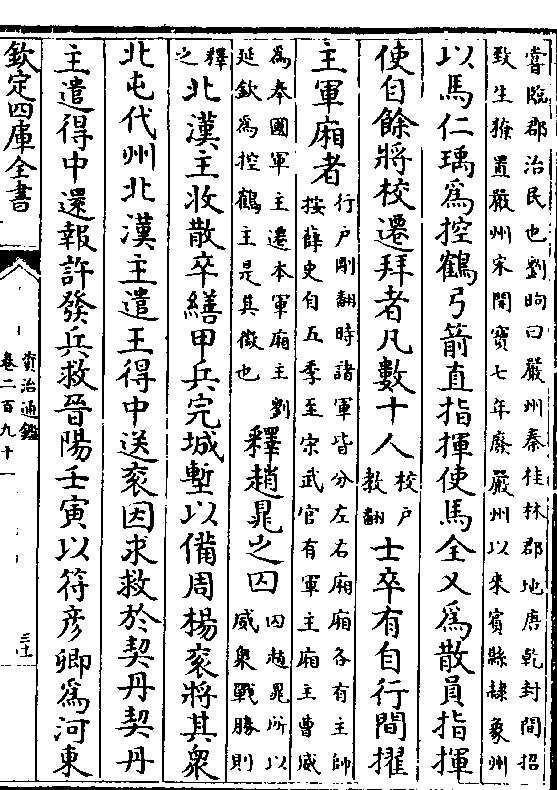 嘗臨郡治民也劉昫曰嚴州秦桂林郡地唐乾封間招
致生獠置嚴州宋開寶七年廢嚴州以來賓縣隸象州
以馬仁瑀為控鶴弓箭直指揮使馬全乂為散員指揮
使自餘將校遷拜者凡數十人校戶教翻士卒有自行間擢
主軍廂者行戶剛翻時諸軍皆分左右廂廂各有主帥
按薛史自五季至宋武官有軍主廂主曹威
為奉國軍主遷本軍廂主劉
延欽為控鶴主是其徵也釋趙晁之囚囚趙晁所以
威衆戰勝則
釋之北漢主收散卒繕甲兵完城塹以備周楊衮將其衆
北屯代州北漢主遣王得中送衮因求救於契丹契丹
主遣得中還報許發兵救晉陽壬寅以符彥卿為河東
欽定四庫全書
資治通鑑
卷二百九十一
三十